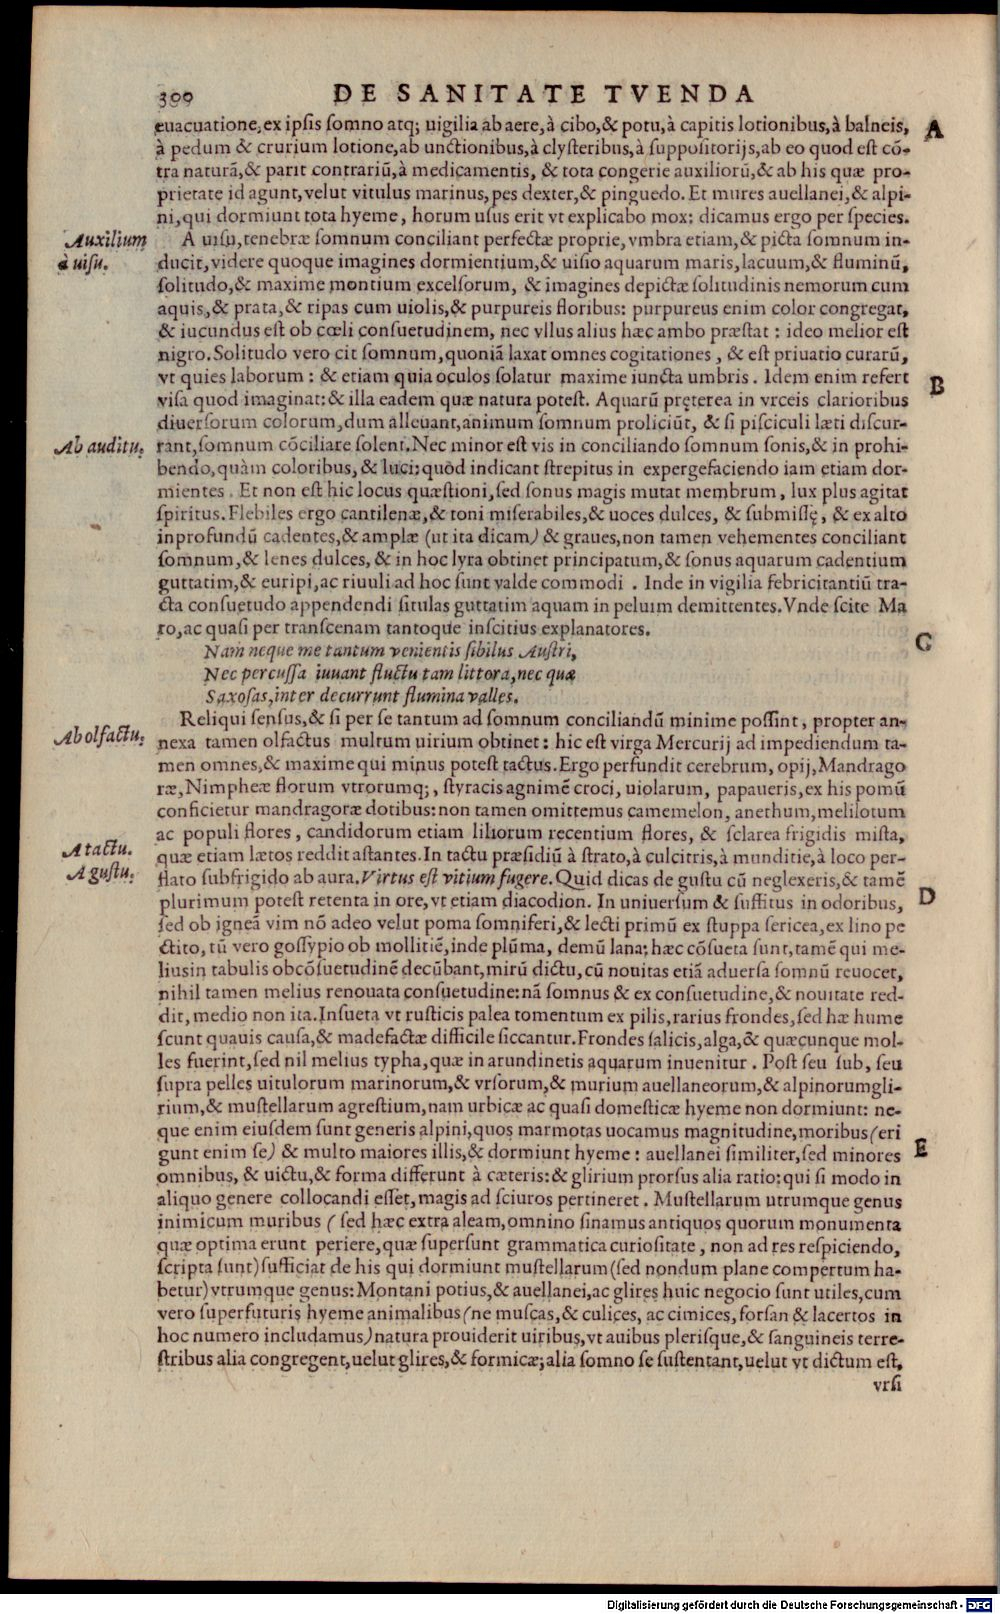 300 DE SANITATE TVENDA
euacuatione, ex ipsis somno atq; uigilia ab aere, à cibo, & potu, à capitis lotionibus, à balneis, A
à pedum & crurium lotione, ab unctionibus, à clysteribus, à suppositorijs, ab eo quod est cō-
tra naturā, & parit contrariū, à medicamentis, & tota congerie auxiliorū, & ab his quæ pro-
prietate id agunt, velut vitulus marinus, pes dexter, & pinguedo. Et mures auellanei, & alpi-
ni, qui dormiunt tota hyeme, horum usus erit vt explicabo mox: dicamus ergo per species.
Auxilium
à uisu.
A uisu, tenebræ somnum conciliant perfectæ proprie, vmbra etiam, & picta somnum in-
ducit, videre quoque imagines dormientium, & uisio aquarum maris, lacuum, & fluminū,
solitudo, & maxime montium excelsorum, & imagines depictæ solitudinis nemorum cum
aquis, & prata, & ripas cum uiolis, & purpureis floribus: purpureus enim color congregat,
& iucundus est ob cœli consuetudinem, nec vllus alius hæc ambo præstat: ideo melior est
nigro. Solitudo vero cit somnum, quoniā laxat omnes cogitationes, & est priuatio curarū,
vt quies laborum: & etiam quia oculos solatur maxime iuncta umbris. Idem enim refert B
visa quod imaginat: & illa eadem quæ natura potest. Aquarū pręterea in vrceis clarioribus
diuersorum colorum, dum alleuant, animum somnum proliciūt, & si pisciculi læti discur-
Ab auditu.
rant, somnum cōciliare solent. Nec minor est vis in conciliando somnum sonis, & in prohi-
bendo, quàm coloribus, & luci: quòd indicant strepitus in expergefaciendo iam etiam dor-
mientes. Et non est hic locus quæstioni, sed sonus magis mutat membrum, lux plus agitat
spiritus. Flebiles ergo cantilenæ, & toni miserabiles, & uoces dulces, & submissę, & ex alto
inprofundū cadentes, & amplæ (ut ita dicam) & graues, non tamen vehementes conciliant
somnum, & lenes dulces, & in hoc lyra obtinet principatum, & sonus aquarum cadentium
guttatim, & euripi, ac riuuli ad hoc sunt valde commodi. Inde in vigilia febricitantiū tra-
cta consuetudo appendendi situlas guttatim aquam in peluim demittentes. Vnde scite Ma
ro, ac quasi per transcenam tantoque inscitius explanatores. C
Nam neque me tantum venientis sibilus Austri,
Nec percussa iuuant fluctu tam littora, nec quæ
Saxosas, inter decurrunt flumina valles.
Ab olfactu.
Reliqui sensus, & si per se tantum ad somnum conciliandū minime possint, propter an-
nexa tamen olfactus multum uirium obtinet: hic est virga Mercurij ad impediendum ta-
men omnes, & maxime qui minus potest tactus. Ergo perfundit cerebrum, opij, Mandrago
ræ, Nimpheæ florum vtrorumq;, styracis agnimē croci, uiolarum, papaueris, ex his pomū
conficietur mandragoræ dotibus: non tamen omittemus camemelon, anethum, melilotum
ac populi flores, candidorum etiam liliorum recentium flores, & sclarea frigidis mista,
A tactu.
A gustu.
quæ etiam lætos reddit astantes. In tactu præsidiū à strato, à culcitris, à munditie, à loco per-
flato subfrigido ab aura. Virtus est vitium fugere. Quid dicas de gustu cū neglexeris, & tamē
plurimum potest retenta in ore, vt etiam diacodion. In uniuersum & suffitus in odoribus, D
sed ob igneā vim nō adeo velut poma somniferi, & lecti primū ex stuppa sericea, ex lino pe
ctito, tū vero gossypio ob mollitiē, inde plūma, demū lana: hæc cōsueta sunt, tamē qui me-
liusin tabulis obcōsuetudinē decūbant, mirū dictu, cū nouitas etiā aduersa somnū reuocet,
nihil tamen melius renouata consuetudine: nā somnus & ex consuetudine, & nouitate red-
dit, medio non ita. Insueta vt rusticis palea tomentum ex pilis, rarius frondes, sed hæ hume
scunt quauis causa, & madefactæ difficile siccantur. Frondes salicis, alga, & quæcunque mol-
les fuerint, sed nil melius typha, quæ in arundinetis aquarum inuenitur. Post seu sub, seu
supra pelles uitulorum marinorum, & vrsorum, & murium auellaneorum, & alpinorumgli-
rium, & mustellarum agrestium, nam urbicæ ac quasi domesticæ hyeme non dormiunt: ne-
que enim eiusdem sunt generis alpini, quos marmotas uocamus magnitudine, moribus (eri
gunt enim se) & multo maiores illis, & dormiunt hyeme: auellanei similiter, sed minores E
omnibus, & uictu, & forma differunt à cæteris: & glirium prorsus alia ratio: qui si modo in
aliquo genere collocandi esset, magis ad sciuros pertineret. Mustellarum utrumque genus
inimicum muribus (sed hæc extra aleam, omnino sinamus antiquos quorum monumenta
quæ optima erunt periere, quæ supersunt grammatica curiositate, non ad res respiciendo,
scripta sunt) sufficiat de his qui dormiunt mustellarum (sed nondum plane compertum ha-
betur) vtrumque genus: Montani potius, & auellanei, ac glires huic negocio sunt utiles, cum
vero superfuturis hyeme animalibus (ne muscas, & culices, ac cimices, forsan & lacertos in
hoc numero includamus) natura prouiderit uiribus, vt auibus plerisque, & sanguineis terre-
stribus alia congregent, uelut glires, & formicæ; alia somno se sustentant, uelut vt dictum est,
vrsi
Digitalisierung gefördert durch die Deutsche Forschungsgemeinschaft - DFG